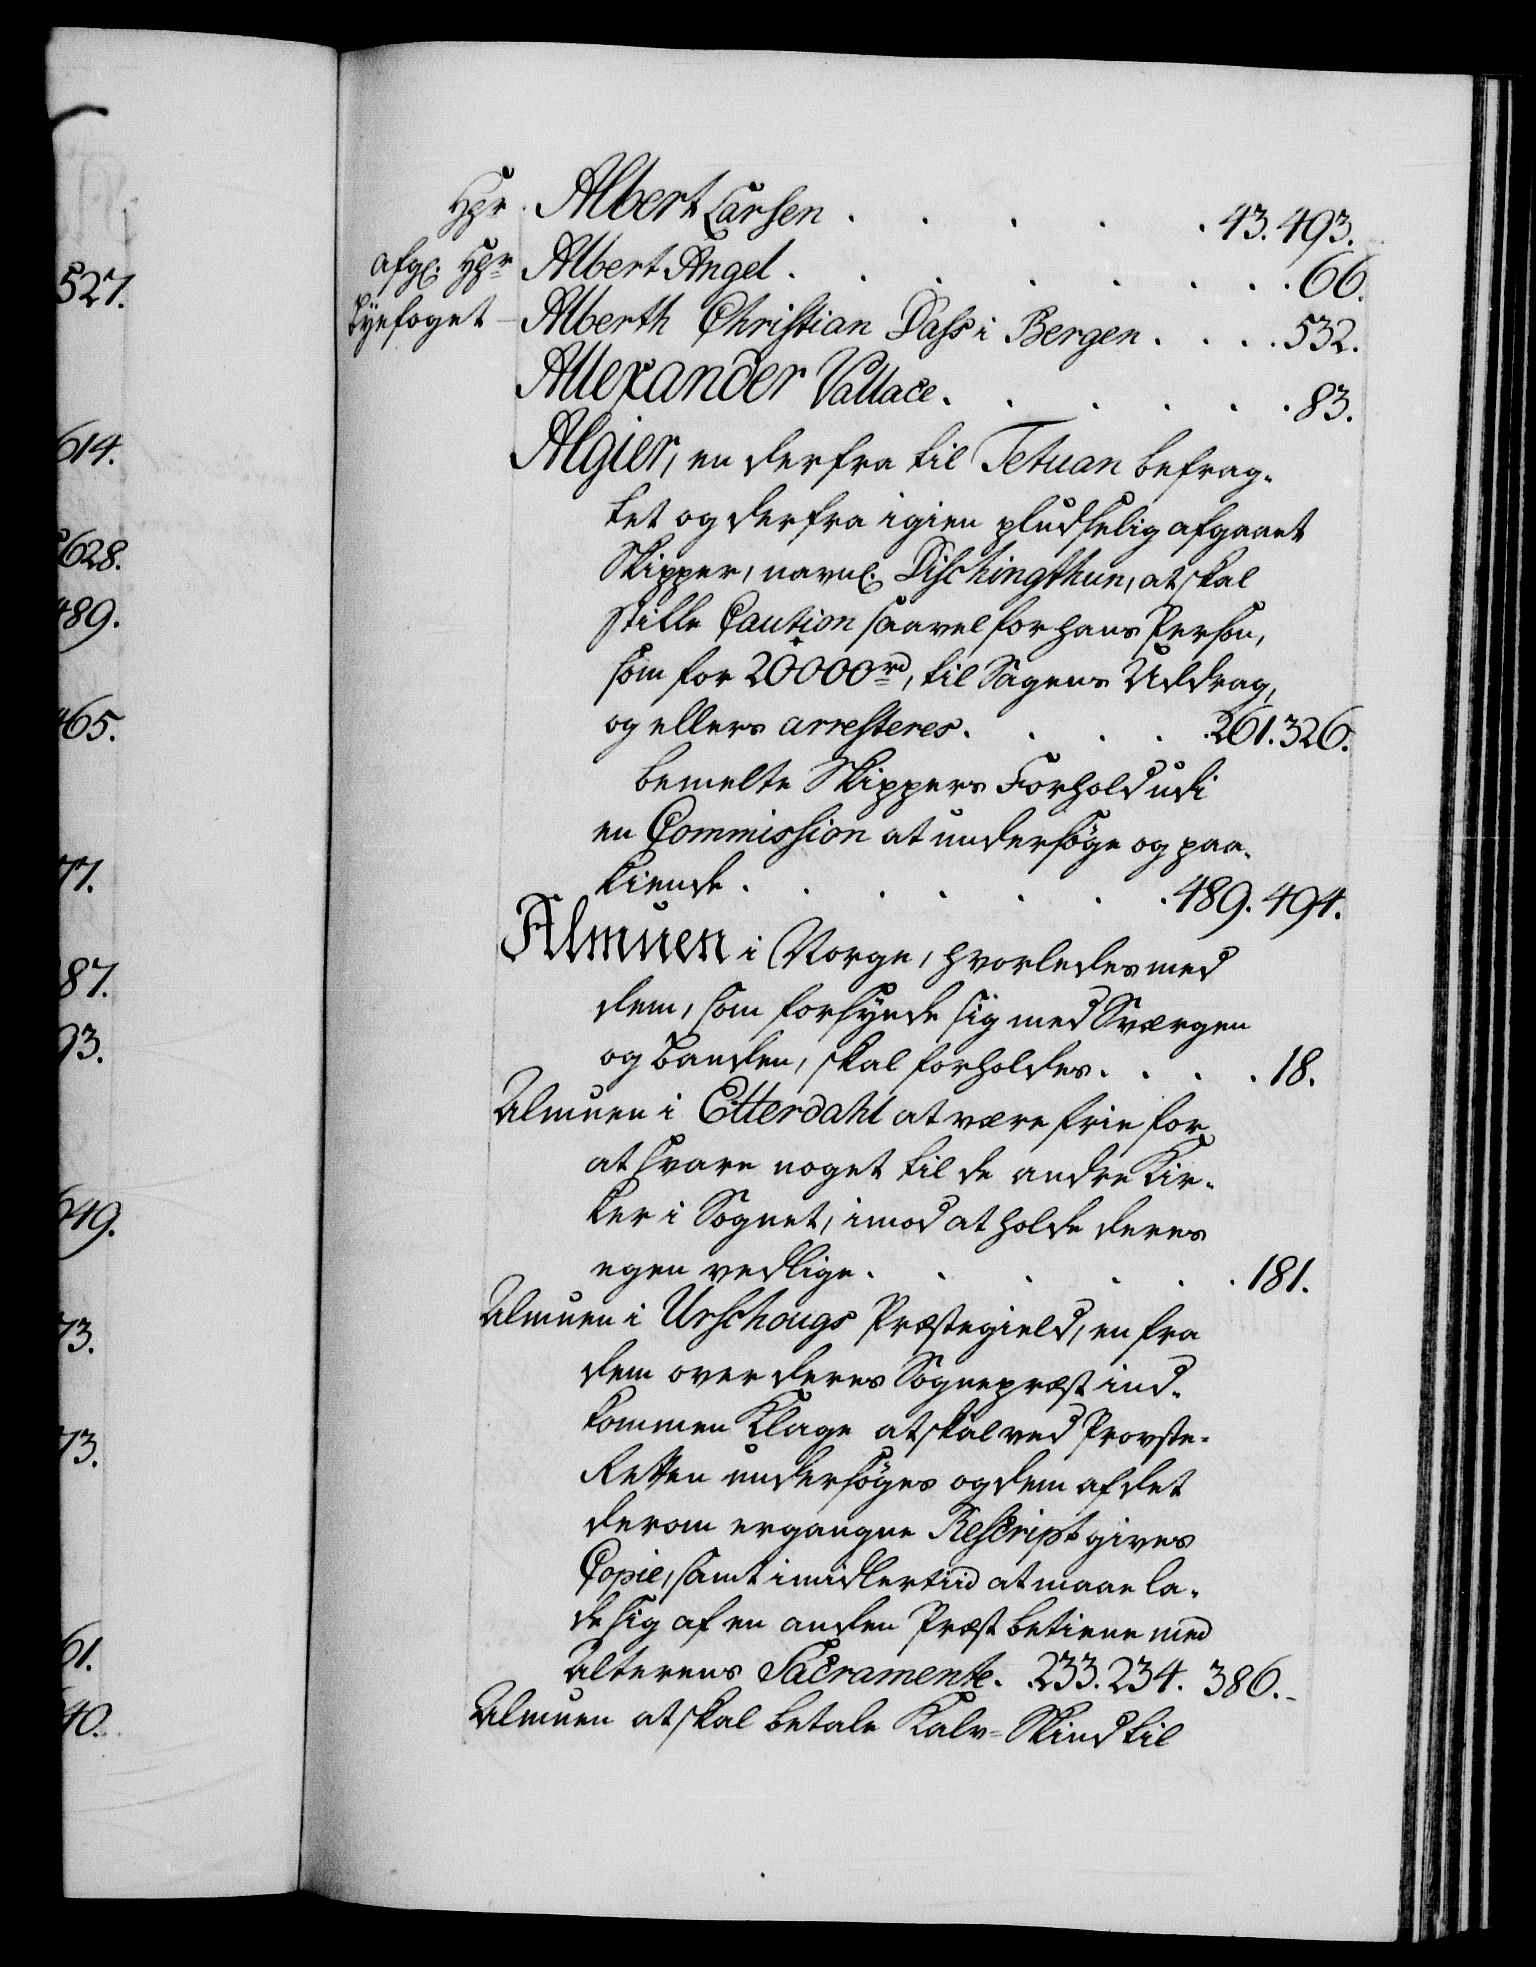 527.
614.
628.
489.
465.
77.
87.
93.
649.
73.
73.
61.
40.
Hr. Albert Larsen . . . . . 43. 493.
afg. Hr Albert Angel . . . . . . . 66.
Byefoget - Alberth Christian Dass i Bergen . . . . 532.
Allexander Vallace . . . . . . 83.
Algier, en derfra til Tetuan befrag-
tet og derfra igien pludselig afgaaet
Skipper, navnl. Dischingthun, at skal
stille Caution saavel for hans Person,
som for 20000 rd, til Sagens Uddrag,
og ellers arresteres . . . . 261. 326.
bemelte Skippers Forhold udi
en Commission at undersøge og paa-
kiende . . . . . . 489. 494.
Almuen i Norge, hvorledes med
dem, som forsynde sig med Sværgen
og Banden, skal forholdes . . . . 18.
Almuen i Etterdahl at være frie for
at svare noget til de andre Kir-
ker i Sognet, imod at holde deres
egen vedlige . . . . . 181.
Almuen i Urschougs Præstegield, en fra
dem over deres Sognepræst ind-
kommen Klage at skal ved Provste-
Retten undersøges og dem af det
derom ergangne Rescript gives
Copie, samt imidlertiid at maae la-
de sig af en anden Præst betiene med
Alterens Sacramente . 233. 234. 386.-
Almuen at skal betale Kalv-Skind til